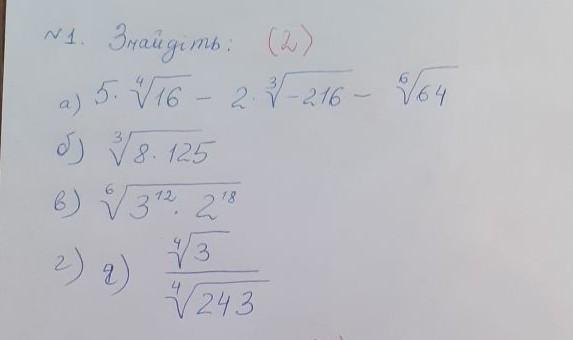 №1. Знайдіть: (2)
а) 5·∜16 − 2·∛−216 − ⁶√64
б) ∛8·125
в) ⁶√3¹²·2¹⁸
г) g) ∜3 / ∜243